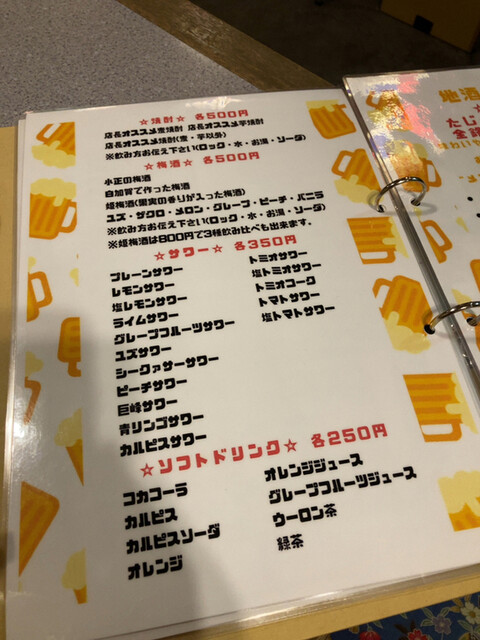 ☆焼酎☆ 各500円
店長オススメ麦焼酎 店長オススメ芋焼酎
店長オススメ焼酎(麦・芋以外)
※飲み方お伝え下さい(ロック・水・お湯・ソーダ)
☆梅酒☆ 各500円
小正の梅酒
自加賀で作った梅酒
姫梅酒(果実の香りが入った梅酒)
ユズ・ザクロ・メロン・グレープ・ピーチ・バニラ
※飲み方お伝え下さい(ロック・水・お湯・ソーダ)
※姫梅酒は800円で3種飲み比べも出来ます。
☆サワー☆ 各350円
プレーンサワー
レモンサワー
塩レモンサワー
ライムサワー
グレープフルーツサワー
ユズサワー
シークァサーサワー
ピーチサワー
巨峰サワー
青リンゴサワー
カルピスサワー
トミオサワー
塩トミオサワー
トミオコーク
トマトサワー
塩トマトサワー
☆ソフトドリンク☆ 各250円
コカコーラ
カルピス
カルピスソーダ
オレンジ
オレンジジュース
グレープフルーツジュース
ウーロン茶
緑茶
地酒
たじ